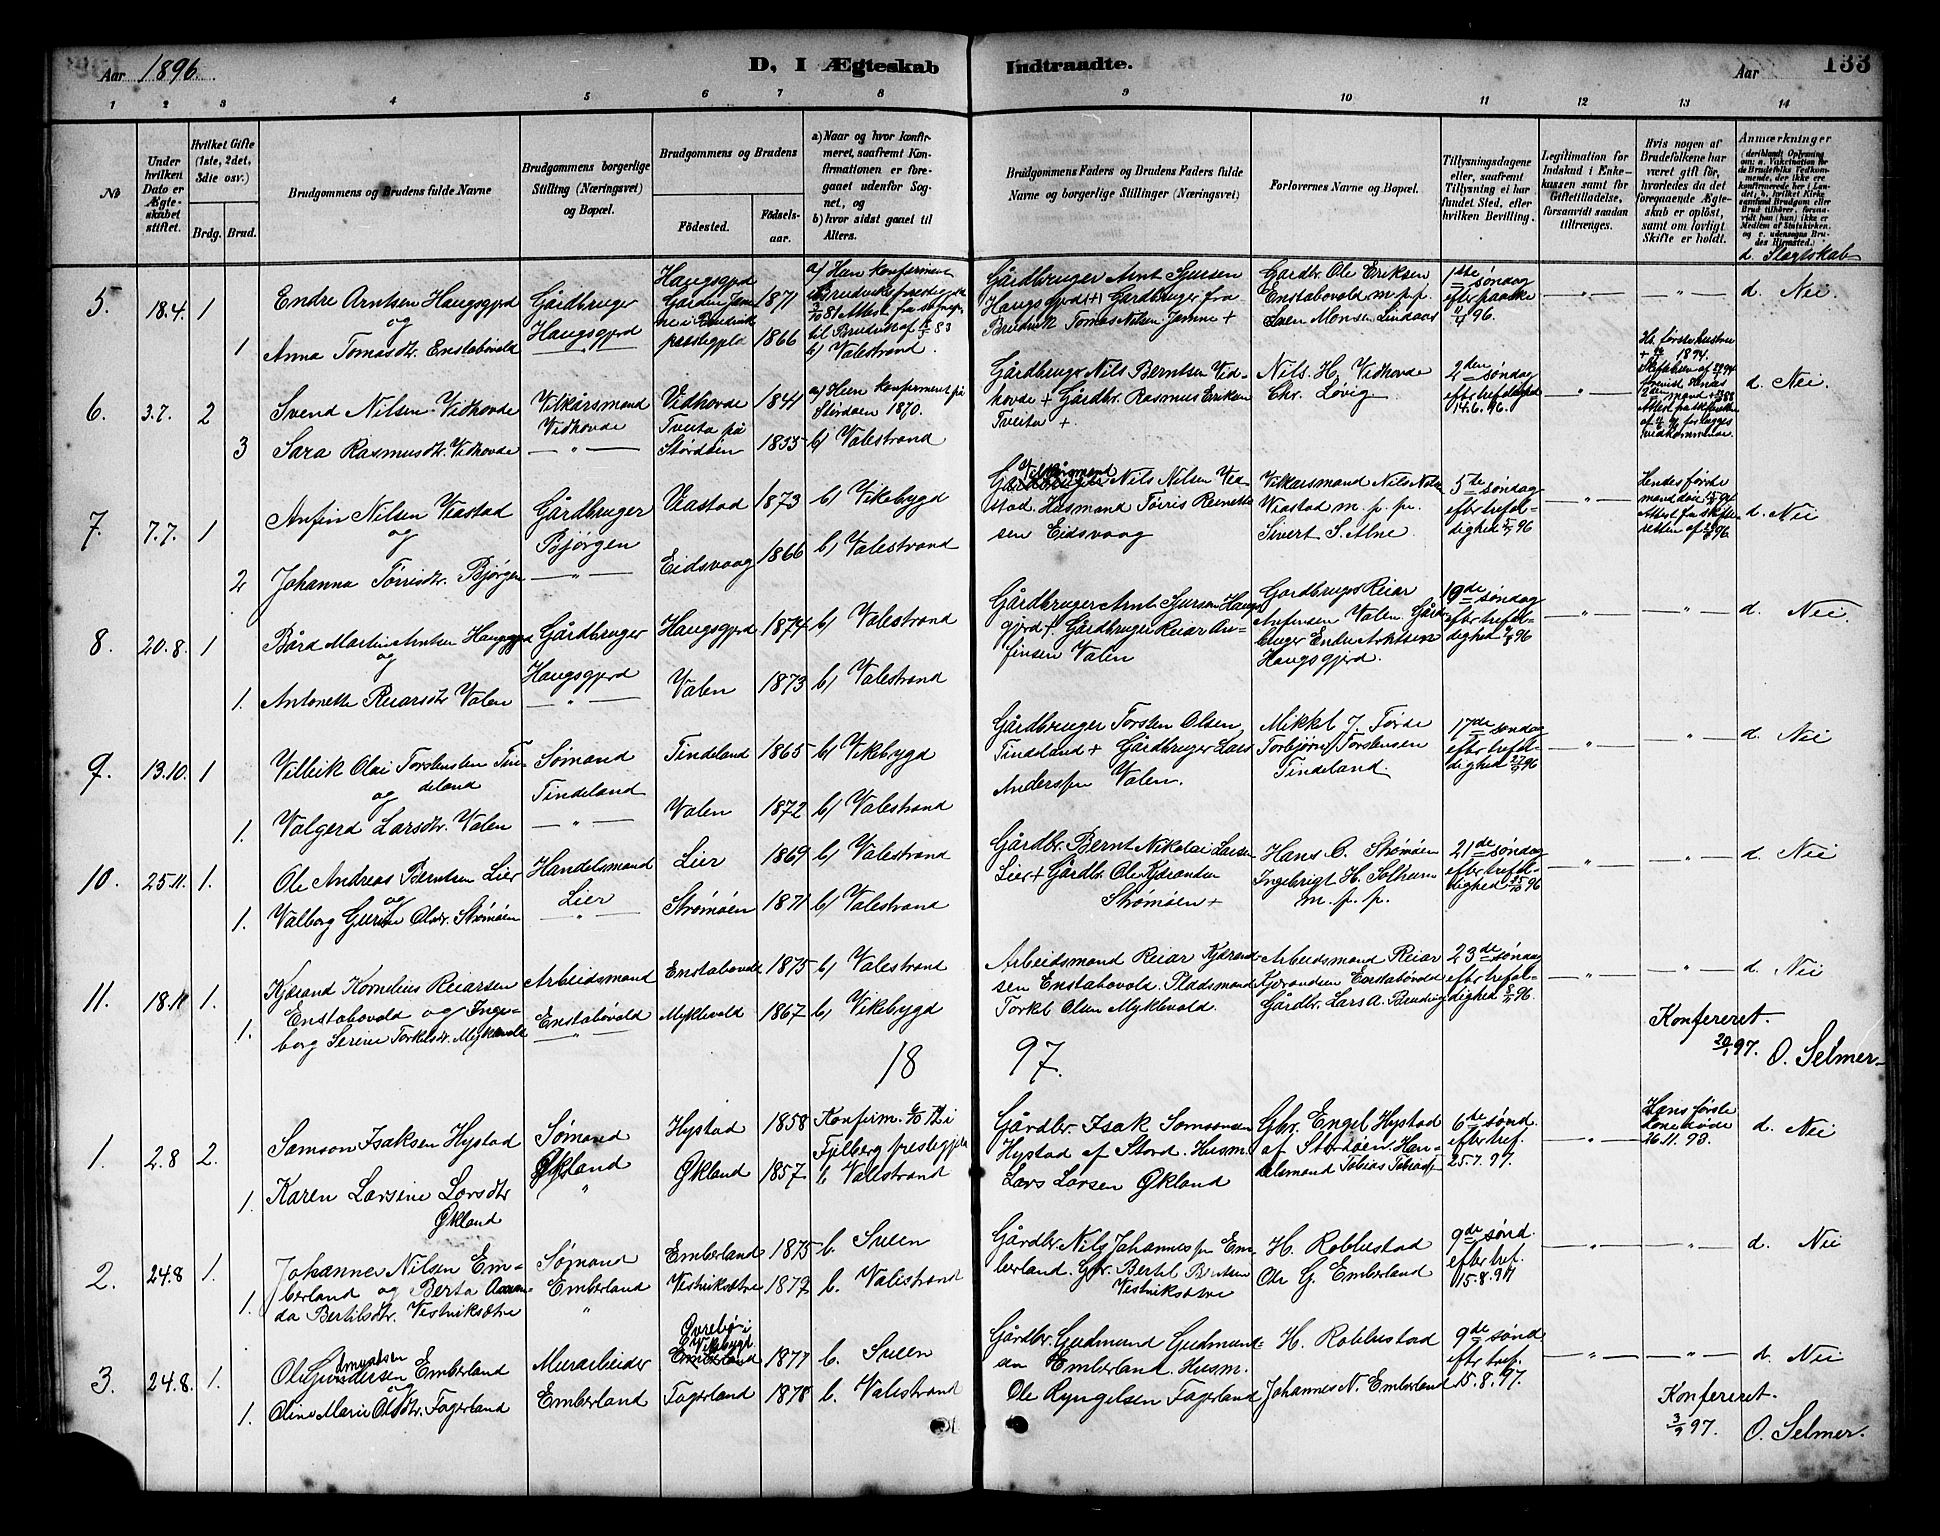 Aar 1896. D, I Ægteskab Indtraadte. Aar 133
1 2 3 4 5 6 7 8 9 10 11 12 13 14
No
Under hvilken Dato er Ægteskabet stiftet.
Hvilket Gifte (1ste, 2det, 3die osv.)
Brdg. Brud.
Brudgommens og Brudens fulde Navne
Brudgommens borgerlige Stilling (Næringsvei) og Bopæl.
Brudgommens og Brudens
Fødested.
Fødselsaar.
a) Naar og hvor konfirmeret, saafremt Konfirmationen er foregaaet udenfor Sognet, og
b) hvor sidst ganet til Alters.
Brudgommens Faders og Brudens Faders fulde Navne og borgerlige Stillinger (Næringsvei)
Forlovernes Navne og Bopæl.
Tillysningsdagene eller, saafremt Tillysning ei har fundet Sted, efter hvilken Bevilling.
Legitimation for Indskud i Enkekassen samt for Giftetilladelse, forsaavidt saadan tiltrænges.
Hvis nogen af Brudefolkene har været gift før, hvorledes da det foregaaende Ægteskab er opløst, samt om lovligt Skifte er holdt.
Anmærkninger
d. Slægtskab
5. 18.4. 1 Endre Arntsen Haugsgjerd og
1 Anna Tomasdtr. Enstabövold
Gårdbruger Haugsgjerd
Haugsgjerd 1871
1866
b) Valestrand.
Gårdbruger Arnt Sjursen Haugsgjerd + Gardbruger fra Bruvik Tomas Nilsen Jamne +
Gardbr. Ole Eriksen Enstabovold m. p. p. Sven Monsen Lindaas
1ste søndag efter paaske 96.
— " — — " — d. Nei.
6. 3.7. 2 Svend Nilsen Vidhovde
3 Sara Rasmusdtr. Vidhovde
Vilkårsmand Vidhovde — " —
Vidhovde 1841
Tveita på Stordöen 1833
a) Han konfirmeret på Stordöen 1870.
b) Valestrand
Gårdbruger Nils Berntsen Vidhovde + Gårdbr. Rasmus Eriksen Tveita +
Nils. H. Vidhovde
Chr. Løvig
2den søndag efter 14.6.96.
— " — d. Nei.
7. 7.7. 1 Anfin Nilsen Viastad og
2 Johanna Törrisdtr. Bjørgen
Gårdbruger Bjørgen — " —
Viastad 1873 b) Vikebygd
Eidsvaag 1866 b) Valestrand
Vilkårsmand Nils Nilsen Viastad. Husmand Törris Reinertsen Eidsvaag
Vilkaarsmand Nils Nilsen Viastad m. p. p.
Sivert S. Alne
5te søndag efter trefoldighed 96
— " — d. Nei
8. 20.8. 1 Bård Martin Arntsen Haugsgjerd og
1. Antonette Reiarsdtr Valen
Gårdbruger Haugsgjerd — " —
Haugsgjerd 1874 b) Valestrand
Valen 1873 b) Valestrand
Gårdbruger Arnt Sjursen Haugsgjerd +. Gårdbruger Reiar Anfinsen Valen
Gardbruger Reiar Anfinsen Valen Gårdbruger Endre Arntsen Haugsgjerd.
efter trefoldighed 96
— " — — " — d. Nei.
9. 13.10. 1 Vilhik Olai Torstensen Tindeland og
1. Valgerd Larsdtr. Valen
Sømand Tindeland — " —
Tindeland 1865 b) Vikebygd
Valen 1872 b) Valestrand
Gårdbruger Torsten Olsen Tindeland + Gårdbruger Lars Anderssen Valen.
Mikkel J. Førde
Torbjørn Torstensen Tindeland.
17de søndag efter trefoldighed 27/9 96
— " — — " — d. Nei
10. 25.11. 1. Ole Andreas Berntsen Lier og
1. Valborg Gurine Olsdr. Strømøen
Handelsmand Lier — " —
Lier 1869 b) Valestrand
Strømøen 1871 b) Valestrand
Gårdbr. Bernt Nikolai Larsen Lier + Gårdbr. Ole Kjærandsen Strømøen +
Hans O. Strømøen
Ingebrigt H. Solheim m. p. p.
21de søndag efter trefoldighed 25/10 96
— " — — " — d. Nei
11. 18.11. 1. Kjærand Kornelius Reiarsen Enstabovold og
1. Ingeborg Serine Torkelsdr. Myklevold
Arbeidsmand Enstabövold — " —
Enstabovold 1875 b) Valestrand
Myklevold 1867 b) Vikebygd
Arbeidsmand Reiar Kjærandsen Enstabovold. Pladsmand Torkel Olsen Myklevold.
Arbeidsmand Reiar Kjærandsen Enstabövold
Gårdbr. Lars A.
23de søndag efter trefoldighed 96.
— " — — " — d. Nei
Konfereret.
20/1 97. O. Selmer
18 97.
1. 2.8 2. Samson Isaksen Hystad
1. Karen Larsine Larsdtr Økland
Sømand Økland "
Hystad 1858
Økland 1857
Konfirm. 6/10 72 i Fjelberg prestegjeld
b Valestrand
Gårdbr. Isak Samsonsen Hystad af Stord. Husm. Lars Larsen Økland
Gbr. Engel Hystad af Stordöen. Handelsmand Tobias Tobiass.
6te sønd. efter tref. 25.7.97.
— " —
Hans første kone døde 26.11.93.
d. Nei
2. 24.8 1. Johannes Nilsen Emberland og
1. Berta Amanda Bertilsdtr. Vestviksætre
Sømand Emberland "
Emberland 1875 b. Sveen
Vestviksætre 1872 b. Valestrand
Gårdbr. Nils Johannessen Emberland. Gbr. Bertel Bentsen Vestviksætre
H. Robbestad
Ole G. Emberland
9de sønd. efter tref. 15.8.97
— " — — " — d. Nei
3. 24.8. 1. Ole Gudmundsen Emberland og
1. Oline Marie Olsdtr. Fagerland
Murarbeider Emberland
Øvrebø i Vikebygd 1877 b. Sveen
Fagerland 1878 b. Valestrand
Gårdbr. Gudmund Gudmundsen Emberland. Husm. Ole Ryngelsen Fagerland
H. Robbestad
Johannes N. Emberland
9de sønd efter tref. 15.8.97.
— " — — " — d. Nei
Konfereret.
3/9 97. O. Selmer.